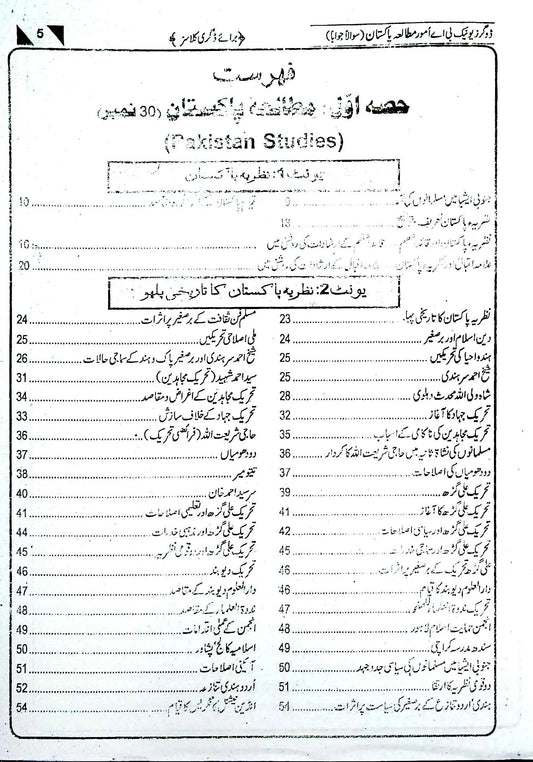 ڈوگرز یونیک بی اے اُمور مطالعہ پاکستان (سوالاً جواباً)
﴿برائے ڈگری کلاسز﴾
5
فہرست
حصہ اوّل: مطالعہ پاکستان (30 نمبر)
(Pakistan Studies)
یونٹ 1: نظریہ پاکستان
جنوبی ایشیا میں مسلمانوں کی آمد 9
قیام پاکستان کے مقاصد 10
نظریہ پاکستان تعریف 13
نظریہ پاکستان اور قائداعظم قائداعظم کے ارشادات کی روشنی میں 16
علامہ اقبال اور نظریہ پاکستان علامہ اقبال کے ارشادات کی روشنی میں 20
یونٹ 2: نظریہ پاکستان کا تاریخی پہلو
نظریہ پاکستان کا تاریخی پہلو 23
مسلم فن ثقافت کے برصغیر پر اثرات 24
دین اسلام اور برصغیر 24
ملی اصلاحی تحریکیں 25
ہندو احیا کی تحریکیں 25
شیخ احمد سرہندی اور برصغیر پاک و ہند کے سماجی حالات 26
شیخ احمد سرہندی 25
سید احمد شہید (تحریک مجاہدین) 31
شاہ ولی اللہ محدث دہلوی 28
تحریک مجاہدین کے اغراض و مقاصد 34
تحریک جہاد کا آغاز 32
تحریک جہاد کے خلاف سازش 33
تحریک مجاہدین کی ناکامی کے اسباب 35
حاجی شریعت اللہ (فرائضی تحریک) 36
مسلمانوں کی نشاۃ ثانیہ میں حاجی شریعت اللہ کا کردار 36
دودھو میاں 37
دودھو میاں کی اصلاحات 37
تیتو میر 38
تحریک علی گڑھ 39
سرسید احمد خان 40
تحریک علی گڑھ کا آغاز 41
تحریک علی گڑھ اور تعلیمی اصلاحات 41
تحریک علی گڑھ اور سیاسی اصلاحات 42
تحریک علی گڑھ اور مذہبی خدمات 44
تحریک علی گڑھ اور سماجی خدمات 45
تحریک علی گڑھ اور دو قومی نظریہ 45
علی گڑھ تحریک کے برصغیر پر اثرات 46
تحریک دیوبند 46
دارالعلوم دیوبند کا قیام 46
دارالعلوم دیوبند کے مقاصد 47
تحریک ندوۃ العلماء لکھنو 47
ندوۃ العلماء کے مقاصد 48
انجمن حمایت اسلام لاہور 48
انجمن کے عملی اقدامات 49
سندھ مدرسہ کراچی 49
اسلامیہ کالج پشاور 50
جنوبی ایشیا میں مسلمانوں کی سیاسی جدوجہد 50
آئینی اصلاحات 51
دو قومی نظریہ کا ارتقا 51
اُردو ہندی تنازعہ 52
ہندی اُردو تنازع کے برصغیر کی سیاست پر اثرات 54
انڈین نیشنل کانگریس کا قیام 54